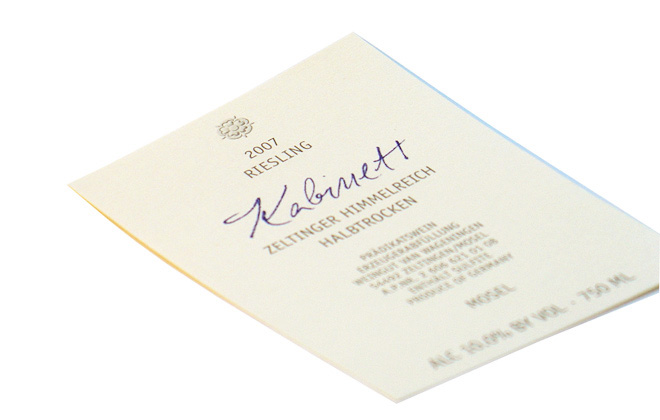 2007
RIESLING
Kabinett
ZELTINGER HIMMELREICH
HALBTROCKEN
PRÄDIKATSWEIN
ERZEUGERABFÜLLUNG
WEINGUT VAN WAGENINGEN
54492 ZELTINGEN/MOSEL
A.P.NR. 2 606 623 01 08
ENTHÄLT SULFITE
PRODUCE OF GERMANY
MOSEL
ALC 10.0% BY VOL · 750 ML